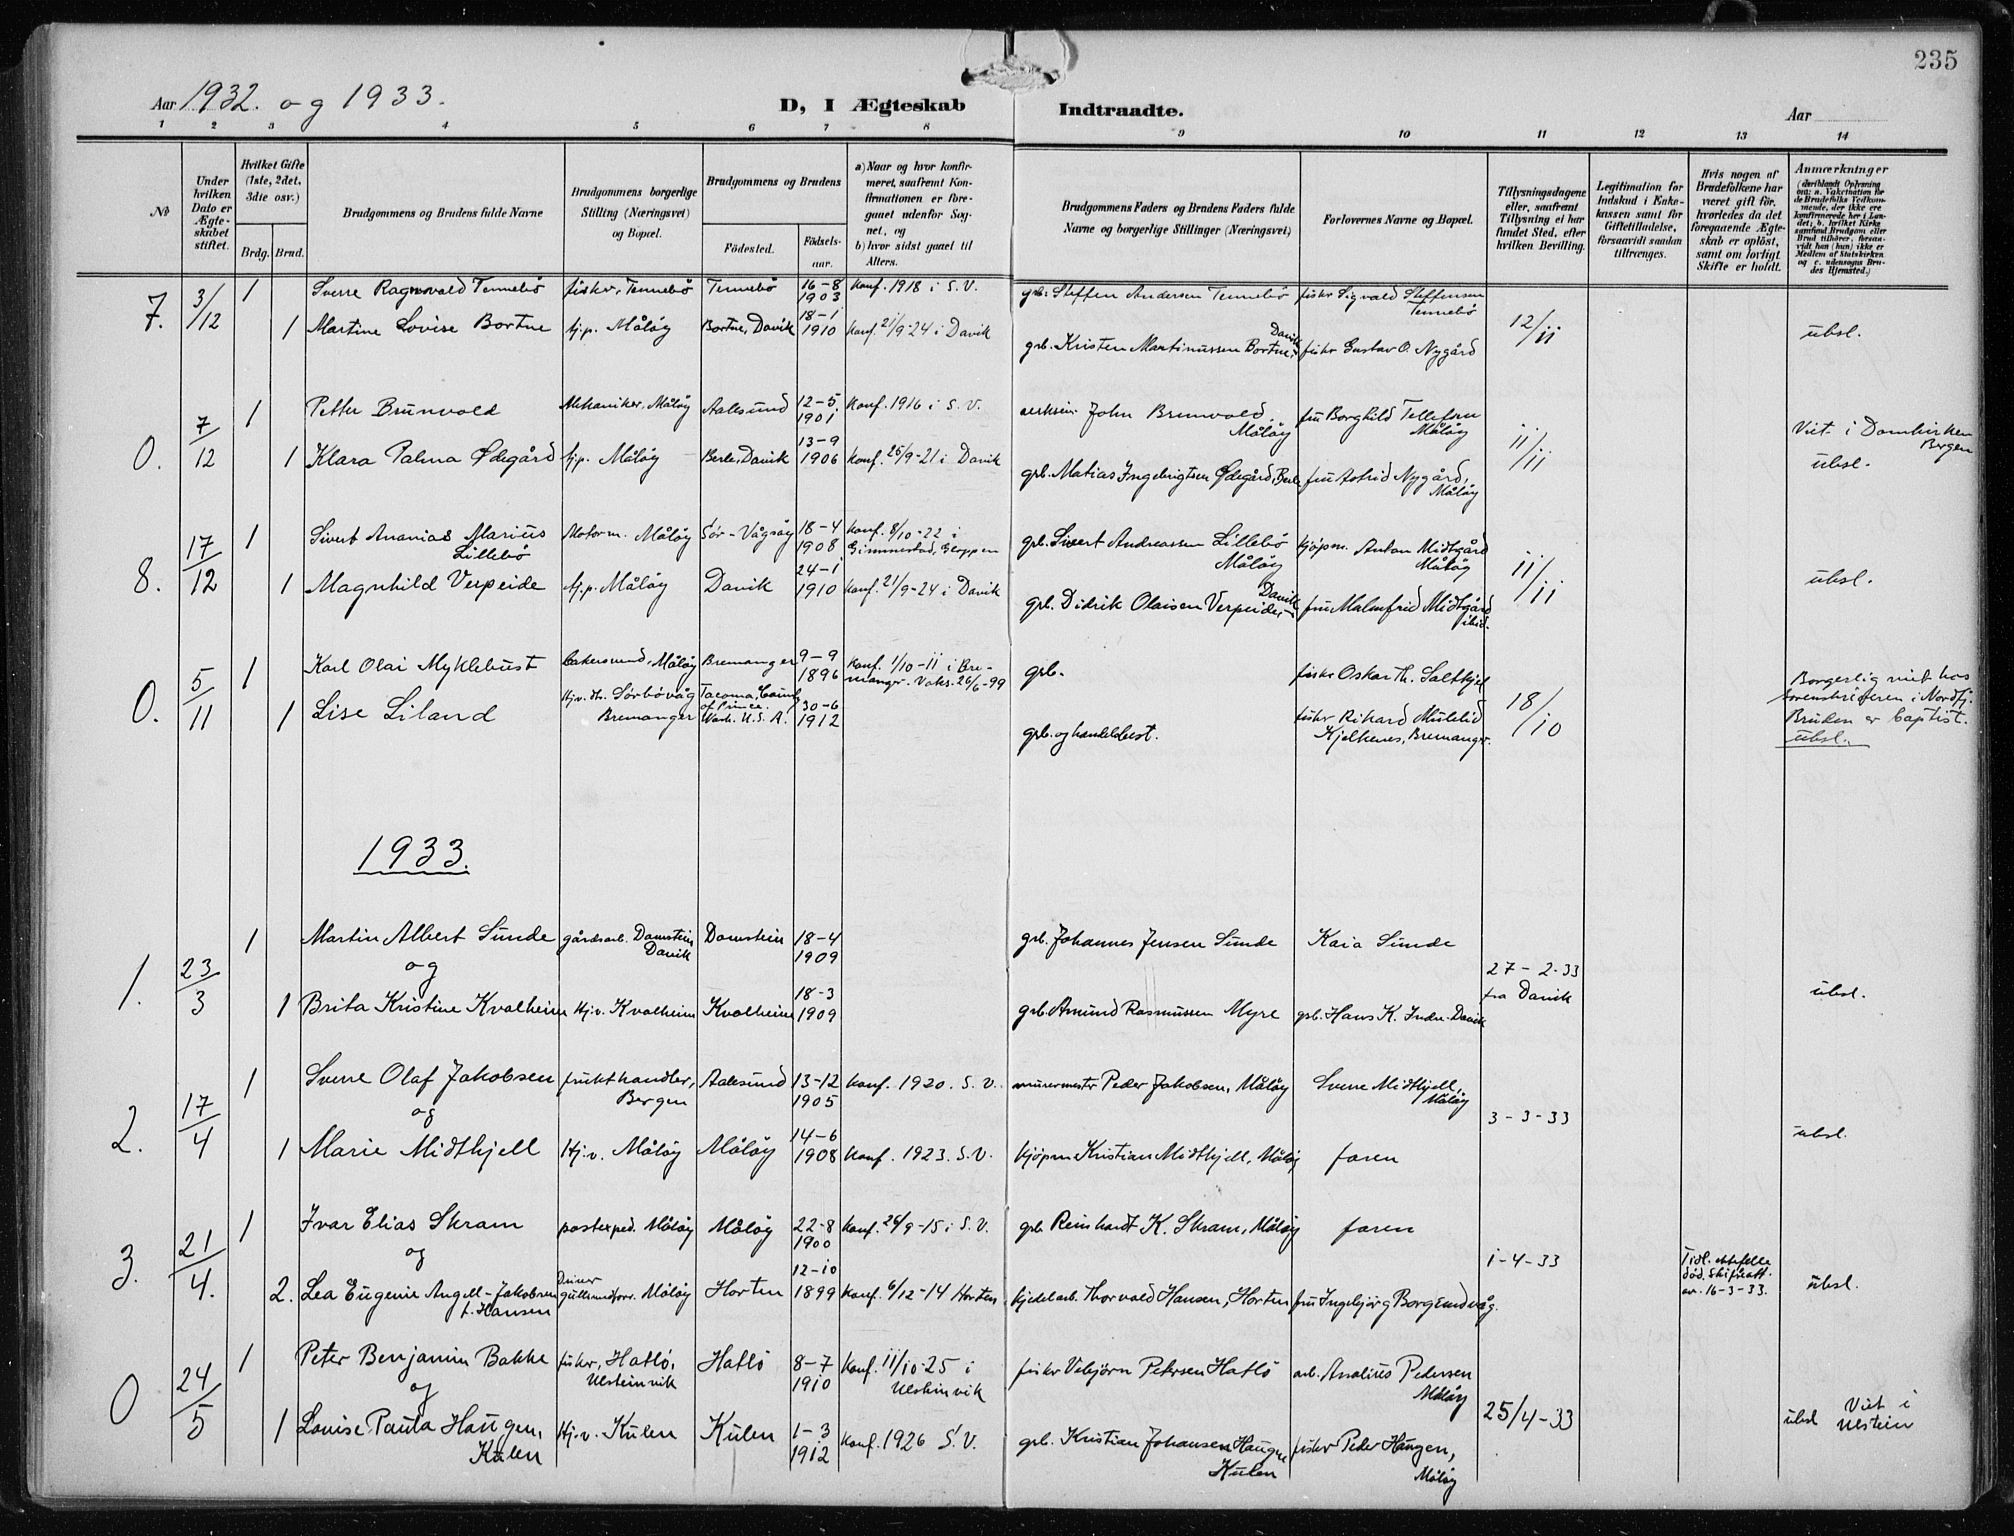 235
Aar 1932. og 1933.
D, I Ægteskab Indtraadte.
Aar
1 2 3 4 5 6 7 8 9 10 11 12 13 14
No
Under hvilken Dato er Ægteskabet stiftet.
Hvilket Gifte (1ste, 2det, 3die osv.)
Brdg. Brud.
Brudgommens og Brudens fulde Navne
Brudgommens borgerlige Stilling (Næringsvei) og Bopæl.
Brudgommens og Brudens
Födested.
Födsels-aar.
a) Naar og hvor konfirmeret, saafremt Konfirmationen er foregaaet udenfor Sognet, og
b) hvor sidst gaaet til Alters.
Brudgommens Faders og Brudens Faders fulde Navne og borgerlige Stillinger (Næringsvei)
Forlovernes Navne og Bopæl.
Tillysningsdagene eller, saafremt Tillysning ei har fundet Sted, efter hvilken Bevilling.
Legitimation for Indskud i Enkekassen samt for Giftetilladelse, forsaavidt saadan tiltrænges.
Hvis nogen af Brudefolkene har været gift før, hvorledes da det foregaaende Ægteskab er opløst, samt om lovligt Skifte er holdt.
Anmærkninger
(deriblandt Oplysning om: a. Vakcination for de Brudefolks Vedkommende, der ikke ere konfirmerede her i Landet, b. hvilket Kirkesamfund Brudgom eller Brud tilhører, forsaavidt han (hun) ikke er Medlem af Statskirken og c. udensogns Brudes Hjemsted.)
7. 3/12 1 Sverre Ragnvald Tennebö fisker, Tennebö Tennebö 16-8 1903 Konf. 1918 i S. V. grb. Steffen Andersen Tennebö fisker Sigvald Steffensen Tennebö
1 Martine Lovise Bortne hj.p. Målöy Bortne, Davik 18-1 1910 Konf. 21/9-24 i Davik grb. Kristen Martinussen Bortne, Davik fisker Gustav O. Nygård 12/11 ubsl.
0. 7/12 1 Petter Brunvold Mekaniker, Målöy Aalesund 12-5 1901 Konf. 1916 i S. V. John Brunvold Målöy fru Borghild Tellefsen Målöy
1 Klara Palma Ødegård hj.p. Målöy Berle, Davik 13-9 1906 Konf. 25/9-21 i Davik grb. Matias Ingebrigtsen Ødegård, Berle fru Astrid Nygård, Målöy 11/11 Viet i Domkirken Bergen ubsl.
8. 17/12 1 Sivert Ananias Marius Lillebö Motorm. Målöy Sör-Vågsöy 18-4 1908 Konf. 8/10-22 i Gimmestad, Gloppen grb. Sivert Andreassen Lillebö Målöy kjöpm. Anton Midtgård Målöy
1 Magnhild Verpeide hj.p. Målöy Davik 24-1 1910 Konf. 21/9-24 i Davik grb. Didrik Olaisen Verpeide, Davik fru Malmfrid Midtgård ibid. 11/11 ubsl.
0. 5/11 1 Karl Olai Myklebust bakersvend, Målöy Bremanger 9-9 1896 Konf. 1/10-11 i Bremanger. Vaks. 26/6-99 grb. fisker Oskar Th. Saltkjel
1 Lise Liland Hj.v. Sörbövåg Bremanger Tacoma, County of Pierce. Wash. U.S.A. 30-6 1912 grb. og handelsbest. fisker Rikard Mulelid Kjelkenes, Bremanger. 18/10 Borgerlig viet hos sorenskriveren i Nordfj. Bruden er baptist. ubsl.
1933.
1. 23/3 1 Martin Albert Sunde gårdsarb. Domstein Davik Domstein 18-4 1909 grb. Johannes Jensen Sunde Kaia Sunde
og
1 Brita Kristine Kvalheim Hj.v. Kvalheim Kvalheim 18-3 1909 grb. Amund Rasmussen Myre grb. Hans K. Indre-Davik 27-2-33 fra Davik ubsl.
2. 17/4 1 Sverre Olaf Jakobsen frukthandler, Bergen Aalesund 13-12 1905 Konf. 1920. S. V. murermester Peder Jakobsen, Målöy Sverre Midtkjell, Målöy
og
1 Marie Midtkjell Hj.v. Målöy Målöy 14-6 1908 Konf. 1923. S.V. kjöpm Kristian Midtkjell, Målöy faren 3-3-33 ubsl.
3. 21/4. 1 Ivar Elias Skram postexped. Målöy Målöy 22-8 1900 Konf. 26/9-15 i S. V. grb Reinhardt K. Skram, Målöy faren
og
2. Lea Eugenie Angell-Jakobsen f. Hansen Målöy Horten 12-10 1899 Konf. 6/12-14 Horten kjedelarb. Thorvald Hansen, Horten fru Ingebjörg Borgundvåg. 1-4-33 Tidl. ektefelle död. Skifteatt. av. 16-3-33. ubsl.
0 24/5 1 Peter Benjamin Bakke fisker, Hatlö, Ulsteinvik Hatlö 8-7 1910 Konf. 11/10-25 i Ulsteinvik fisker Vebjörn Petersen Hatlö arb. Ansalius Pedersen Målöy
og
1 Louise Paula Haugen, Kulen Hj.v. Kulen Kulen 1-3 1912 Konf. 1926 S.V. grb. Kristian Johansen Haugen Kulen fisker Peder Haugen, Målöy 25/4-33 ubsl Viet i Ulstein